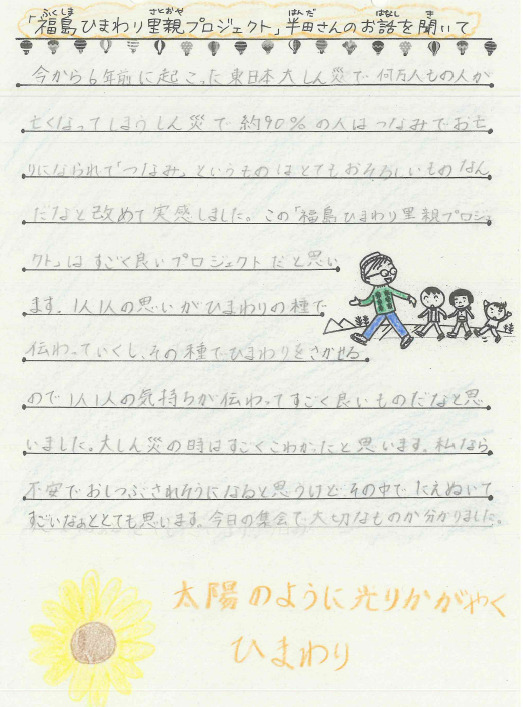 「福島ひまわり里親プロジェクト」半田さんのお話を聞いて
ふくしま さとおや はんだ はなし き
今から6年前に起こった東日本大しん災で何万人もの人が
亡くなってしまうしん災で約90%の人はつなみでお亡
りになられて「つなみ」というものはとてもおそろしいものなん
だなと改めて実感しました。この「福島ひまわり里親プロジェ
クト」はすごく良いプロジェクトだと思い
ます。1人1人の思いがひまわりの種で
伝わっていくし、その種でひまわりをさかせる
ので1人1人の気持ちが伝わってすごく良いものだなと思
いました。大しん災の時はすごくこわかったと思います。私なら
不安でおしつぶされそうになると思うけどその中でたえぬいて
すごいなぁととても思います。今日の集会で大切なものが分かりました。
太陽のように光りかがやく
ひまわり